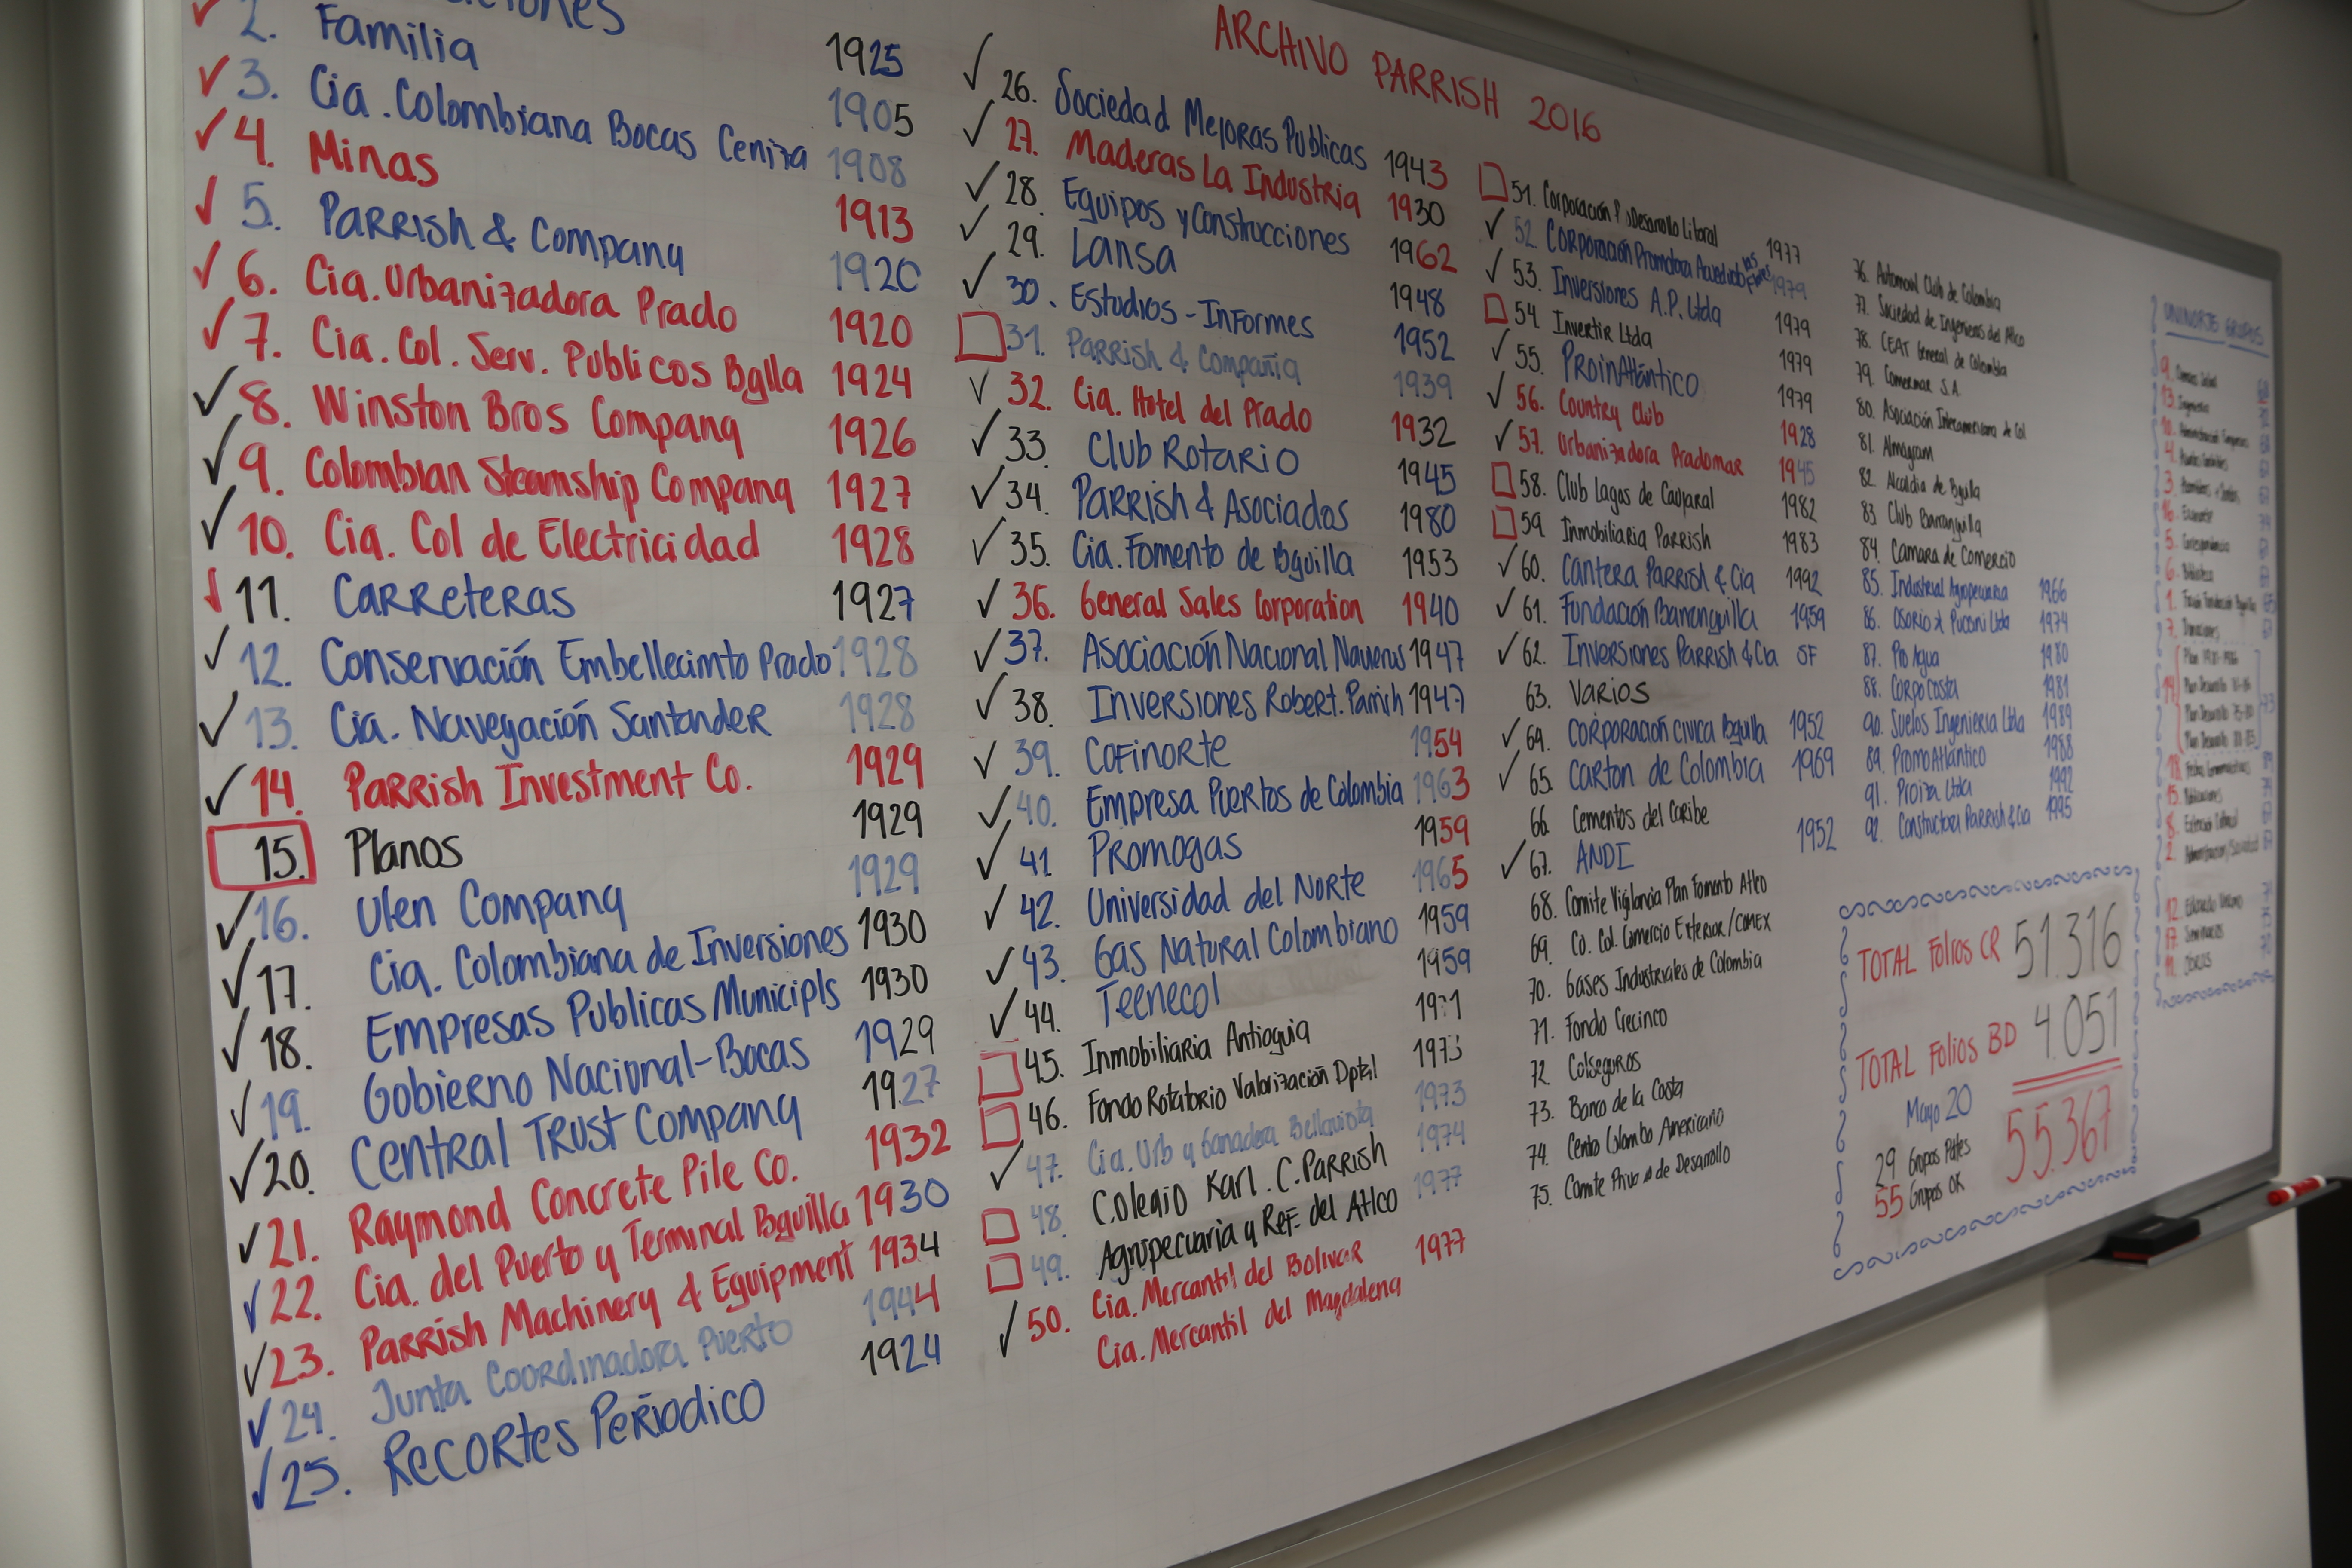 ARCHIVO PARRISH 2016
1925
2. Familia 1905
3. Cia. Colombiana Bocas Ceniza 1908
4. Minas 1913
5. Parrish & Company 1920
6. Cia. Urbanizadora Prado 1920
7. Cia. Col. Serv. Publicos Bqlla 1924
8. Winston Bros Company 1926
9. Colombian Steamship Company 1927
10. Cia. Col de Electricidad 1928
11. Carreteras 1927
12. Conservación Embellecimto Prado 1928
13. Cia. Navegación Santander 1928
14. Parrish Investment Co. 1929
15. Planos 1929
16. Ulen Company 1929
17. Cia. Colombiana de Inversiones 1930
18. Empresas Publicas Municipls 1930
19. Gobierno Nacional-Bocas 1929
20. Central Trust Company 1927
21. Raymond Concrete Pile Co. 1932
22. Cia. del Puerto y Terminal Bquilla 1930
23. Parrish Machinery & Equipment 1934
24. Junta Coordinadora Puerto 1944
25. Recortes Periodico 1924
26. Sociedad Mejoras Publicas 1943
27. Maderas La Industria 1930
28. Equipos y Construcciones 1962
29. Lansa 1948
30. Estudios - Informes 1952
31. Parrish & Compañia 1939
32. Cia. Hotel del Prado 1932
33. Club Rotario 1945
34. Parrish & Asociados 1980
35. Cia. Fomento de Bquilla 1953
36. General Sales Corporation 1940
37. Asociación Nacional Navieros 1947
38. Inversiones Robert. Parrish 1947
39. Cofinorte 1954
40. Empresa Puertos de Colombia 1963
41. Promogas 1959
42. Universidad del Norte 1965
43. Gas Natural Colombiano 1959
44. Tecnecol 1959
45. Inmobiliaria Antioquia 1971
46. Fondo Rotatorio Valorización Dptal 1973
47. Cia. Urb y Ganadera Bellavista 1973
48. Colegio Karl. C. Parrish 1974
49. Agropecuaria y Ref. del Atlco 1977
50. Cia. Mercantil del Bolivar 1977
Cia. Mercantil del Magdalena
51. Corporación Desarrollo Litoral 1977
52 Corporación Promotora Acueducto 1979
53. Inversiones A.P. Ltda 1979
54. Invertir Ltda 1979
55. ProinAtlántico 1979
56. Country Club 1928
57. Urbanizadora Pradomar 1945
58. Club Lagos de Caujaral 1982
59. Inmobiliaria Parrish 1983
60. Cantera Parrish & Cia 1992
61. Fundación Barranquilla 1959
62. Inversiones Parrish & Cia SF
63. Varios
64. Corporación Civica Bquilla 1952
65. Carton de Colombia 1969
66. Cementos del Caribe
67. ANDI 1952
68. Comite Vigilancia Plan Fomento Atlco
69. Co. Col. Comercio Exterior/COMEX
70. Gases Industriales de Colombia
71. Fondo Crecinco
72. Colseguros
73. Banco de la Costa
74. Centro Colombo Americano
75. Comite Privado de Desarrollo
76. Automovil Club de Colombia
77. Sociedad de Ingenieros del Atlco
78. CEAT General de Colombia
79. Comermar S.A.
80. Asociación Interamericana de Col
81. Almagram
82. Alcaldia de Bquilla
83 Club Barranquilla
84. Camara de Comercio
85. Industrial Agropecuaria 1966
86. Osorio & Puccini Ltda 1974
87. Pro Agua 1980
88. Corpo Costa 1981
90. Suelos Ingenieria Ltda 1989
89. PromoAtlántico 1988
91. Proiza Ltda 1992
92. Constructora Parrish & Cia 1995
TOTAL Folios CR 51.316
TOTAL Folios BD 4.051
Mayo 20 55.367
29 Grupos Pdtes
55 Grupos OK
UNINORTE GRUPOS